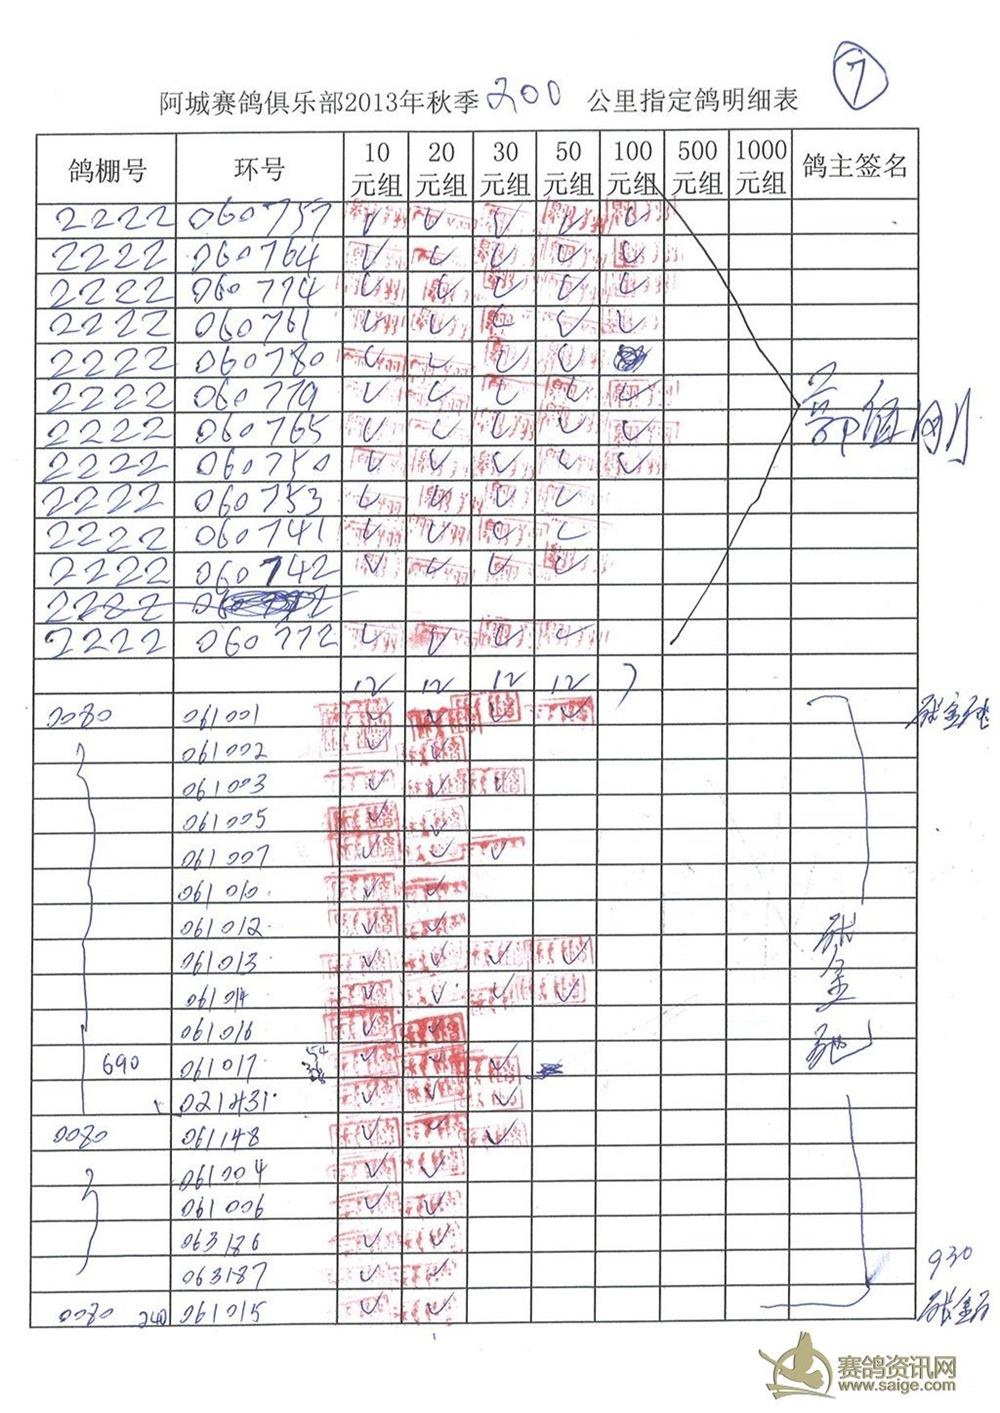 7
阿城赛鸽俱乐部2013年秋季 200 公里指定鸽明细表
鸽棚号 环号 10元组 20元组 30元组 50元组 100元组 500元组 1000元组 鸽主签名
2222 060757 ✓ ✓ ✓ ✓ ✓
2222 060764 ✓ ✓ ✓ ✓ ✓
2222 060774 ✓ ✓ ✓ ✓ ✓
2222 060761 ✓ ✓ ✓ ✓ ✓
2222 060780 ✓ ✓ ✓ ✓
2222 060779 ✓ ✓ ✓ ✓ ✓
2222 060765 ✓ ✓ ✓ ✓ ✓
2222 060750 ✓ ✓ ✓ ✓ ✓
2222 060753 ✓ ✓ ✓ ✓
2222 060741 ✓ ✓ ✓ ✓
2222 060742 ✓ ✓ ✓ ✓
2222
2222 060772 ✓ ✓ ✓ ✓
12 12 12 12 7
0080 061001 ✓ ✓ ✓ ✓
061002 ✓ ✓
061003 ✓ ✓ ✓
061005 ✓ ✓
061007 ✓ ✓ ✓
061010 ✓ ✓
061012 ✓ ✓
061013 ✓ ✓ ✓ ✓
061014 ✓ ✓ ✓ ✓
061016 ✓ ✓
690 061017 ✓ ✓ ✓
021431 ✓ ✓ ✓
0080 061148 ✓ ✓ ✓
061004 ✓ ✓
061006 ✓ ✓
063186 ✓ ✓
063187 ✓ ✓
930
0080 240 061015 ✓ ✓
赛鸽资讯网
www.saige.com